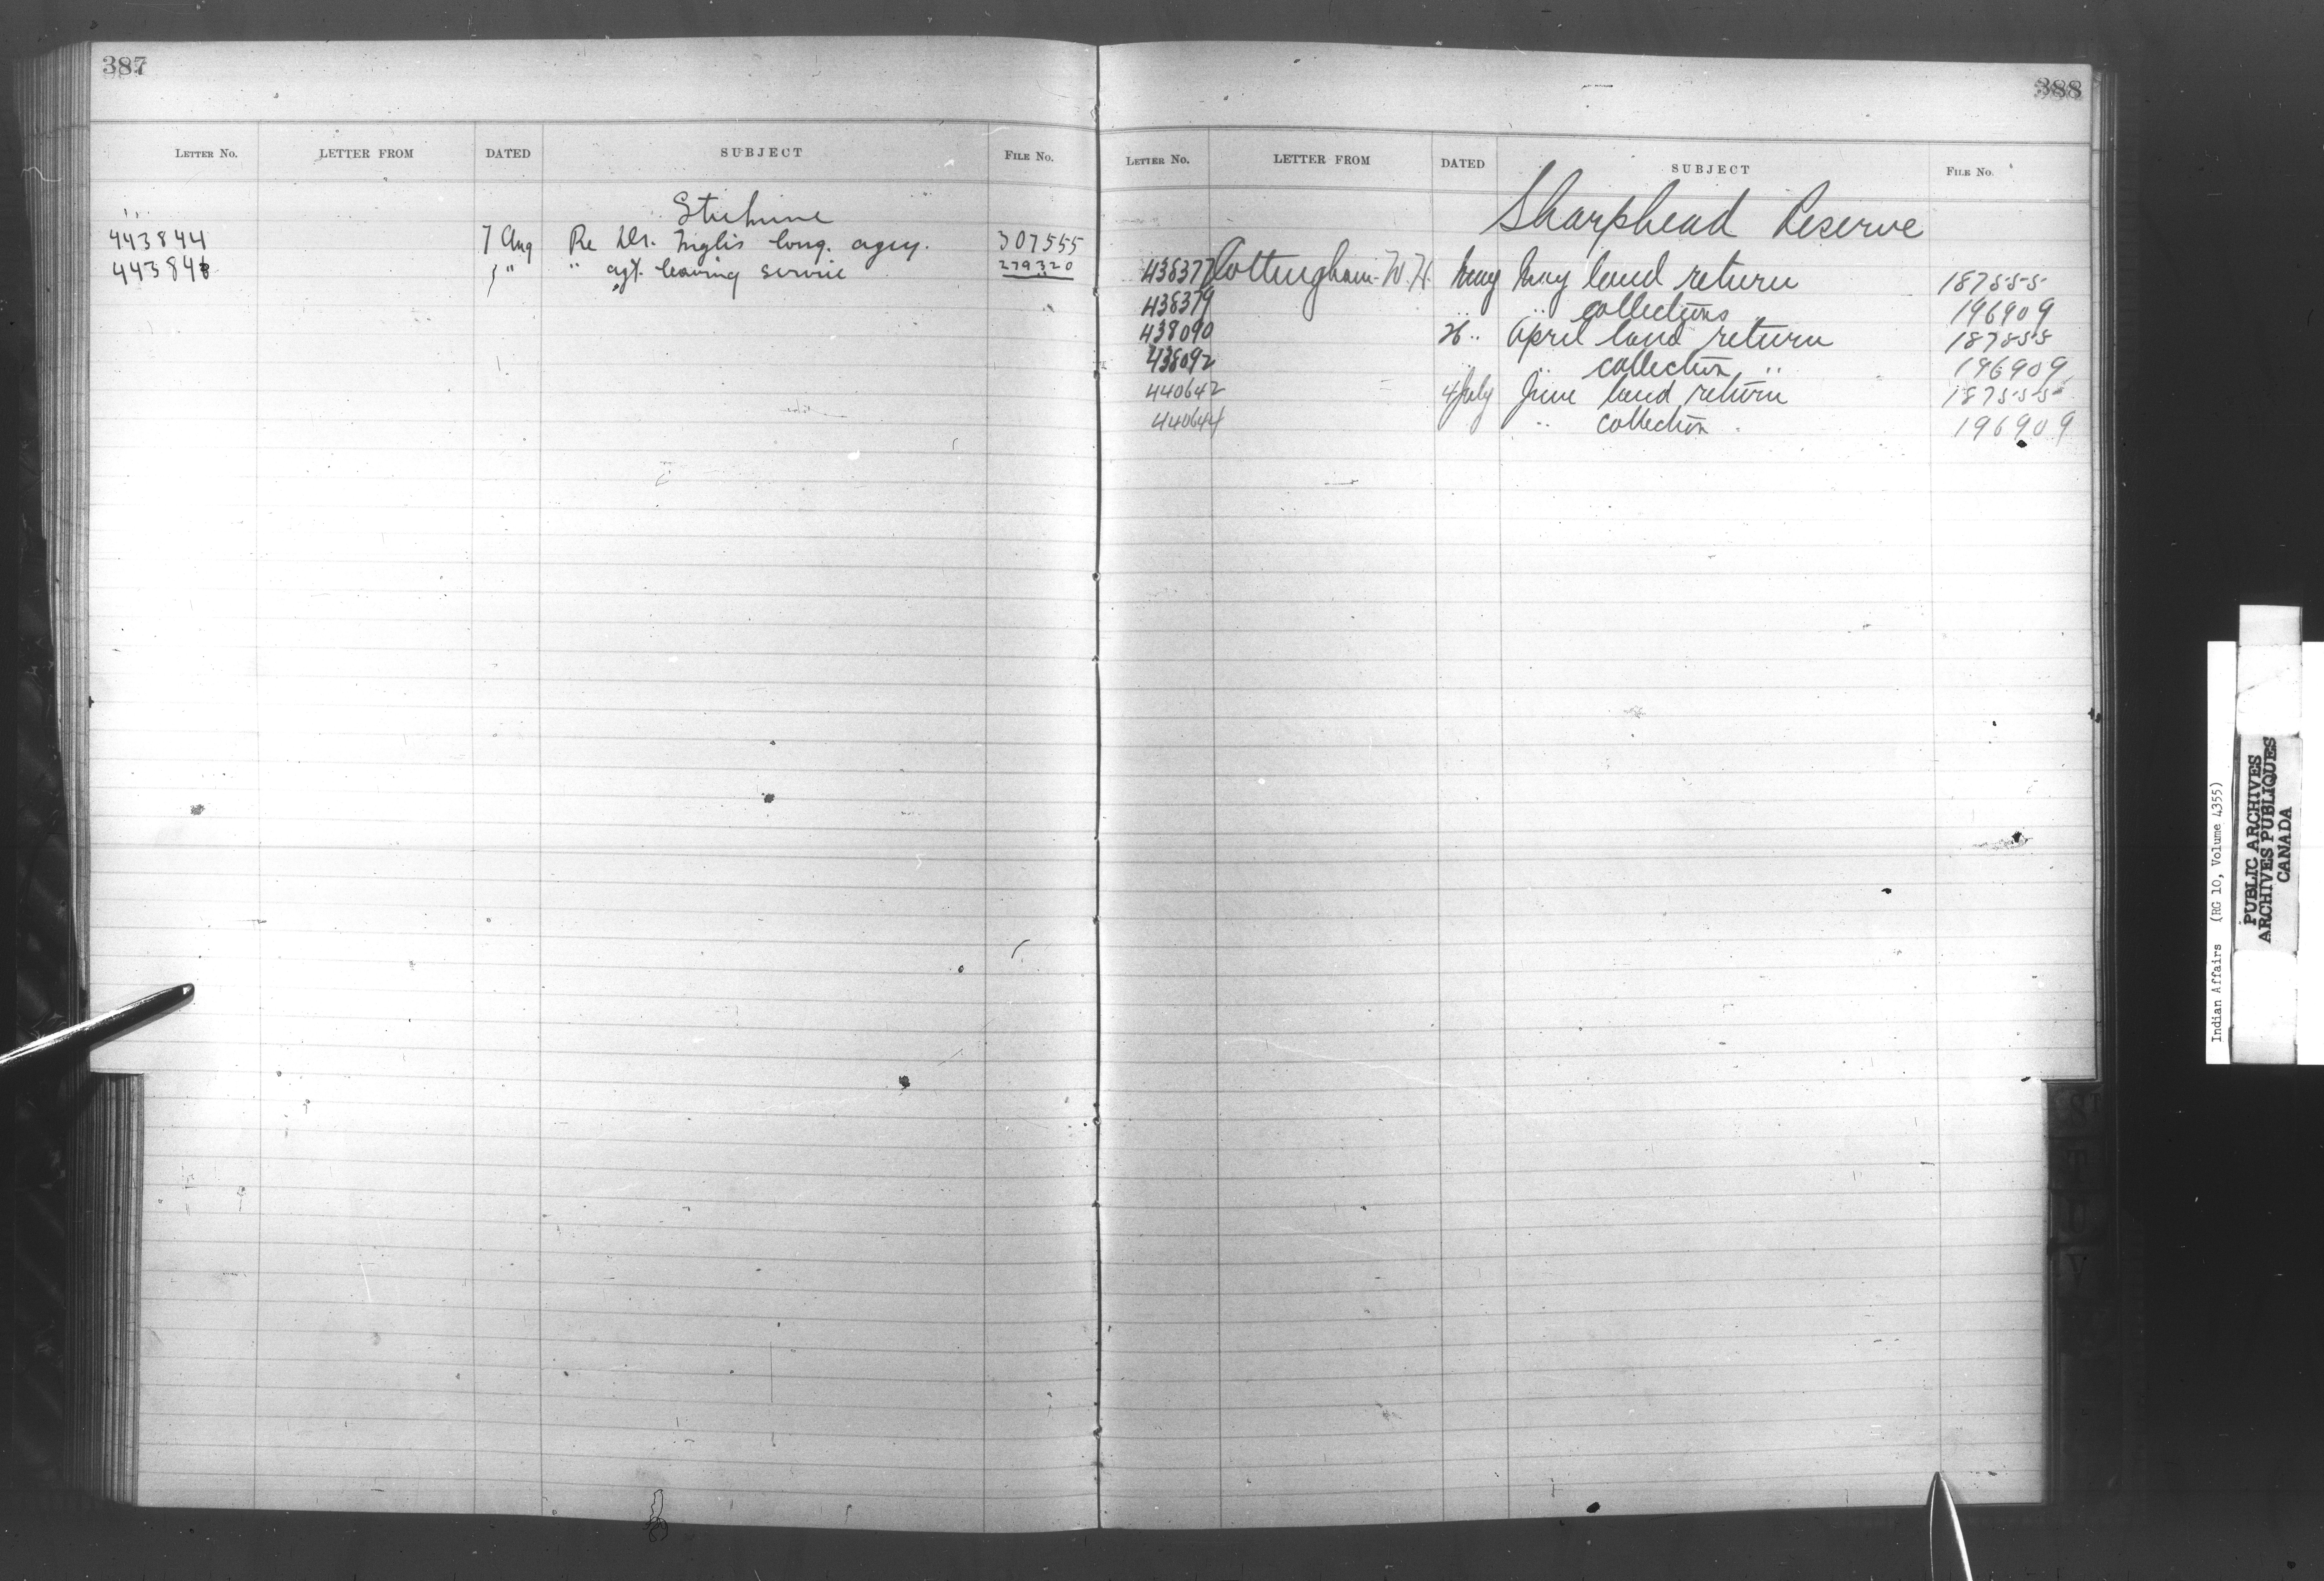 387
LETTER NO. LETTER FROM DATED SUBJECT FILE NO.
Stickine
443844 7 Aug Re Dr. Inglis long. agcy. 307555
443846 " " agt. leaving service 279320
388
LETTER NO. LETTER FROM DATED SUBJECT FILE NO.
Sharphead Reserve
438377 Cottingham W.H. May May land return 187555
438379 " collections 196909
438090 26 " April land return 187555
438092 " collection " 196909
440642 4 July June land return 187555
440644 " collection " 196909
Indian Affairs (RG 10, Volume 4355)
PUBLIC ARCHIVES
ARCHIVES PUBLIQUES
CANADA